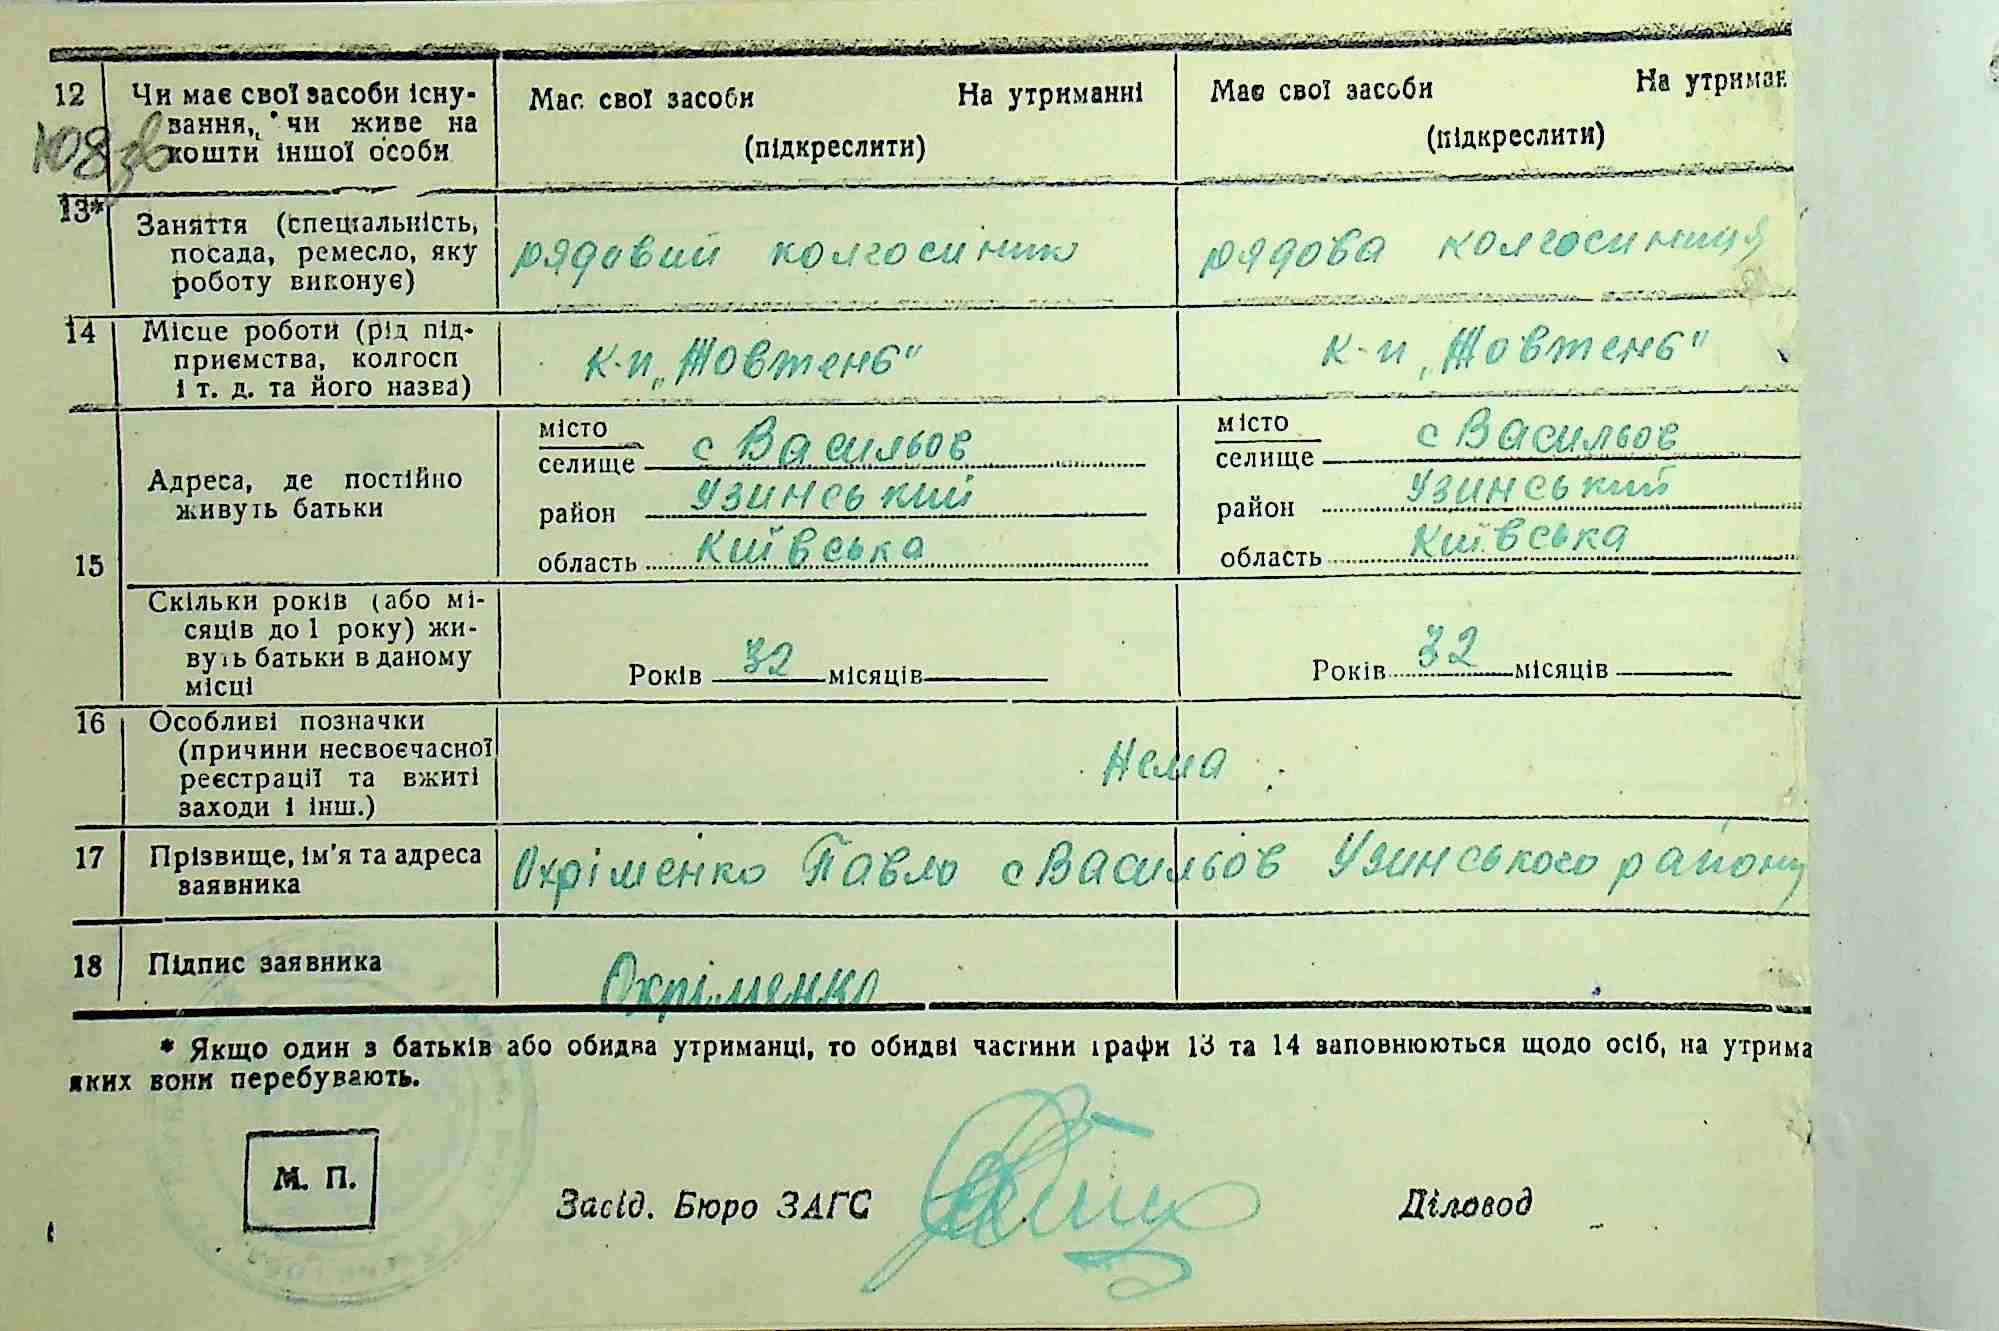 12 Чи має свої засоби існу- Має свої засоби На утриманні Має свої засоби На утриман
вання, чи живе на (підкреслити) (підкреслити)
108 зв кошти іншої особи
13* Заняття (спеціальність,
посада, ремесло, яку рядовий колгоспник рядова колгоспниця
роботу виконує)
14 Місце роботи (рід під-
приємства, колгосп к-п „Жовтень" к-п „Жовтень"
і т. д. та його назва)
місто місто
селище с Васильов селище с Васильов
Адреса, де постійно
живуть батьки район Узинський район Узинський
15 область Київська область Київська
Скільки років (або мі-
сяців до 1 року) жи-
вуть батьки в даному Років 32 місяців Років 32 місяців
місці
16 Особливі позначки
(причини несвоєчасної Нема
реєстрації та вжиті
заходи і інш.)
17 Прізвище, ім'я та адреса Охріменко Павло с Васильов Узинського району
заявника
18 Підпис заявника Охріменко
* Якщо один з батьків або обидва утриманці, то обидві частини графи 13 та 14 заповнюються щодо осіб, на утрима
яких вони перебувають.
М. П.
Засід. Бюро ЗАГС Діловод